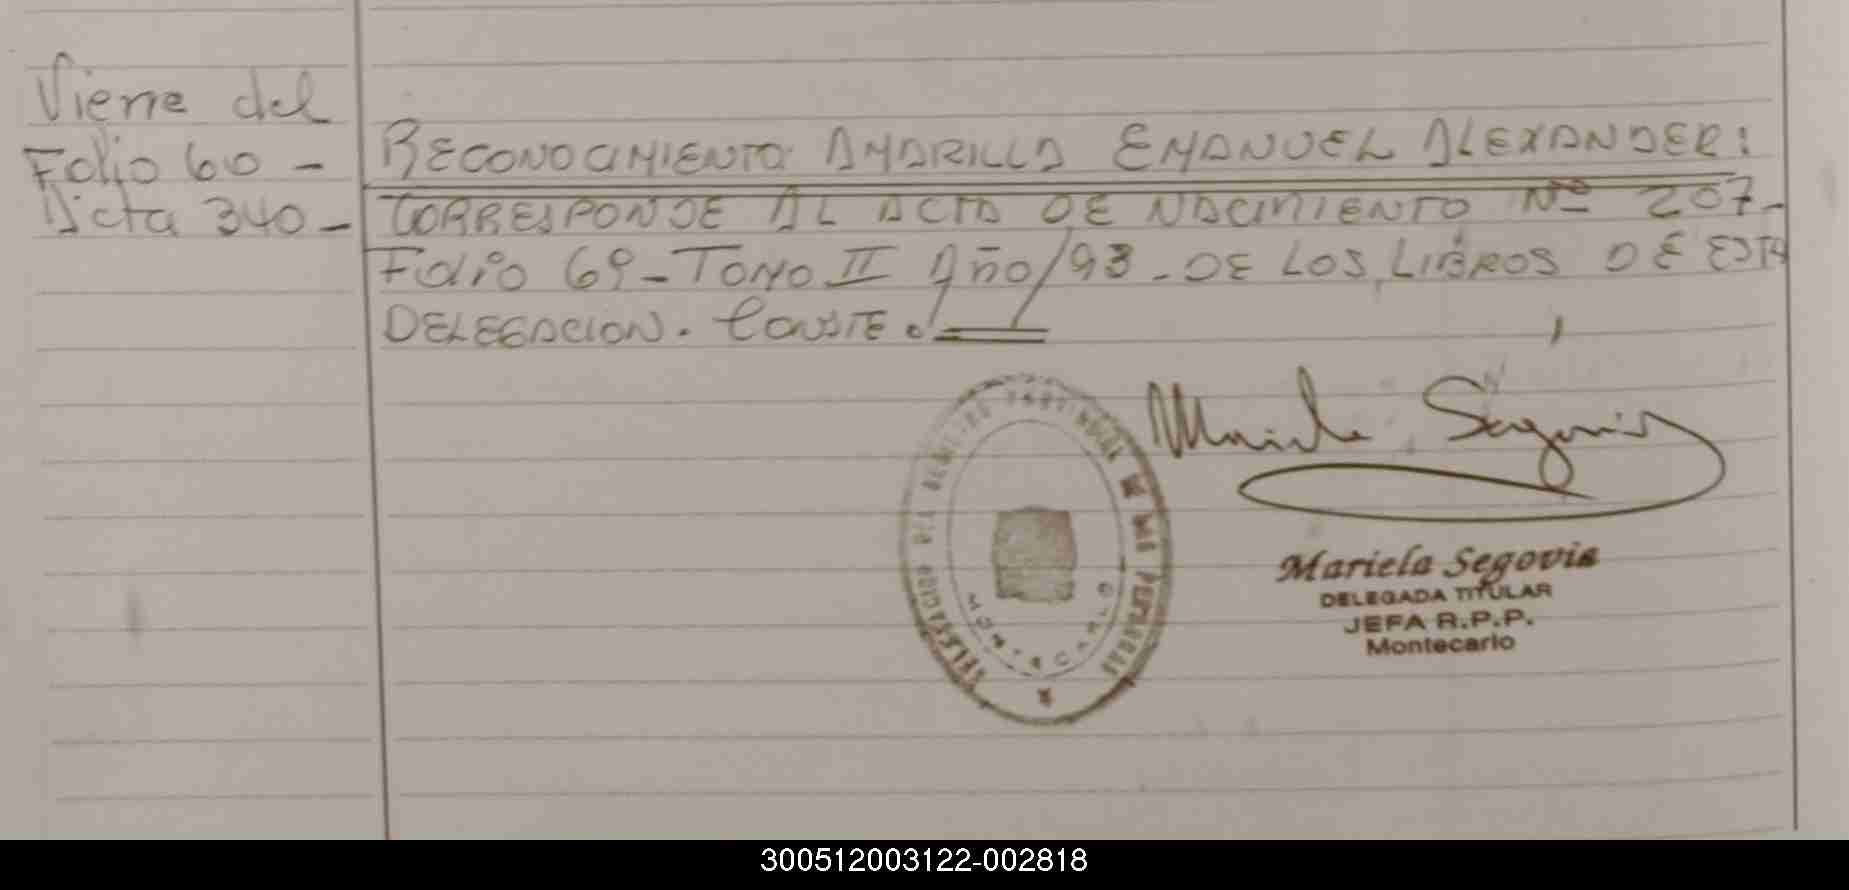 Viene del
Folio 60 -
Acta 340 -
RECONOCIMIENTO AMARILLA EMANUEL ALEXANDER:
CORRESPONDE AL ACTA DE NACIMIENTO Nº 207-
Folio 69 - TOMO II Año/93 - DE LOS LIBROS DE ESTA
DELEGACION. CONSTE.
Mariela Segovia
DE LAS PERSONAS
MONTECARLO
Mariela Segovia
DELEGADA TITULAR
JEFA R.P.P.
Montecarlo
300512003122-002818